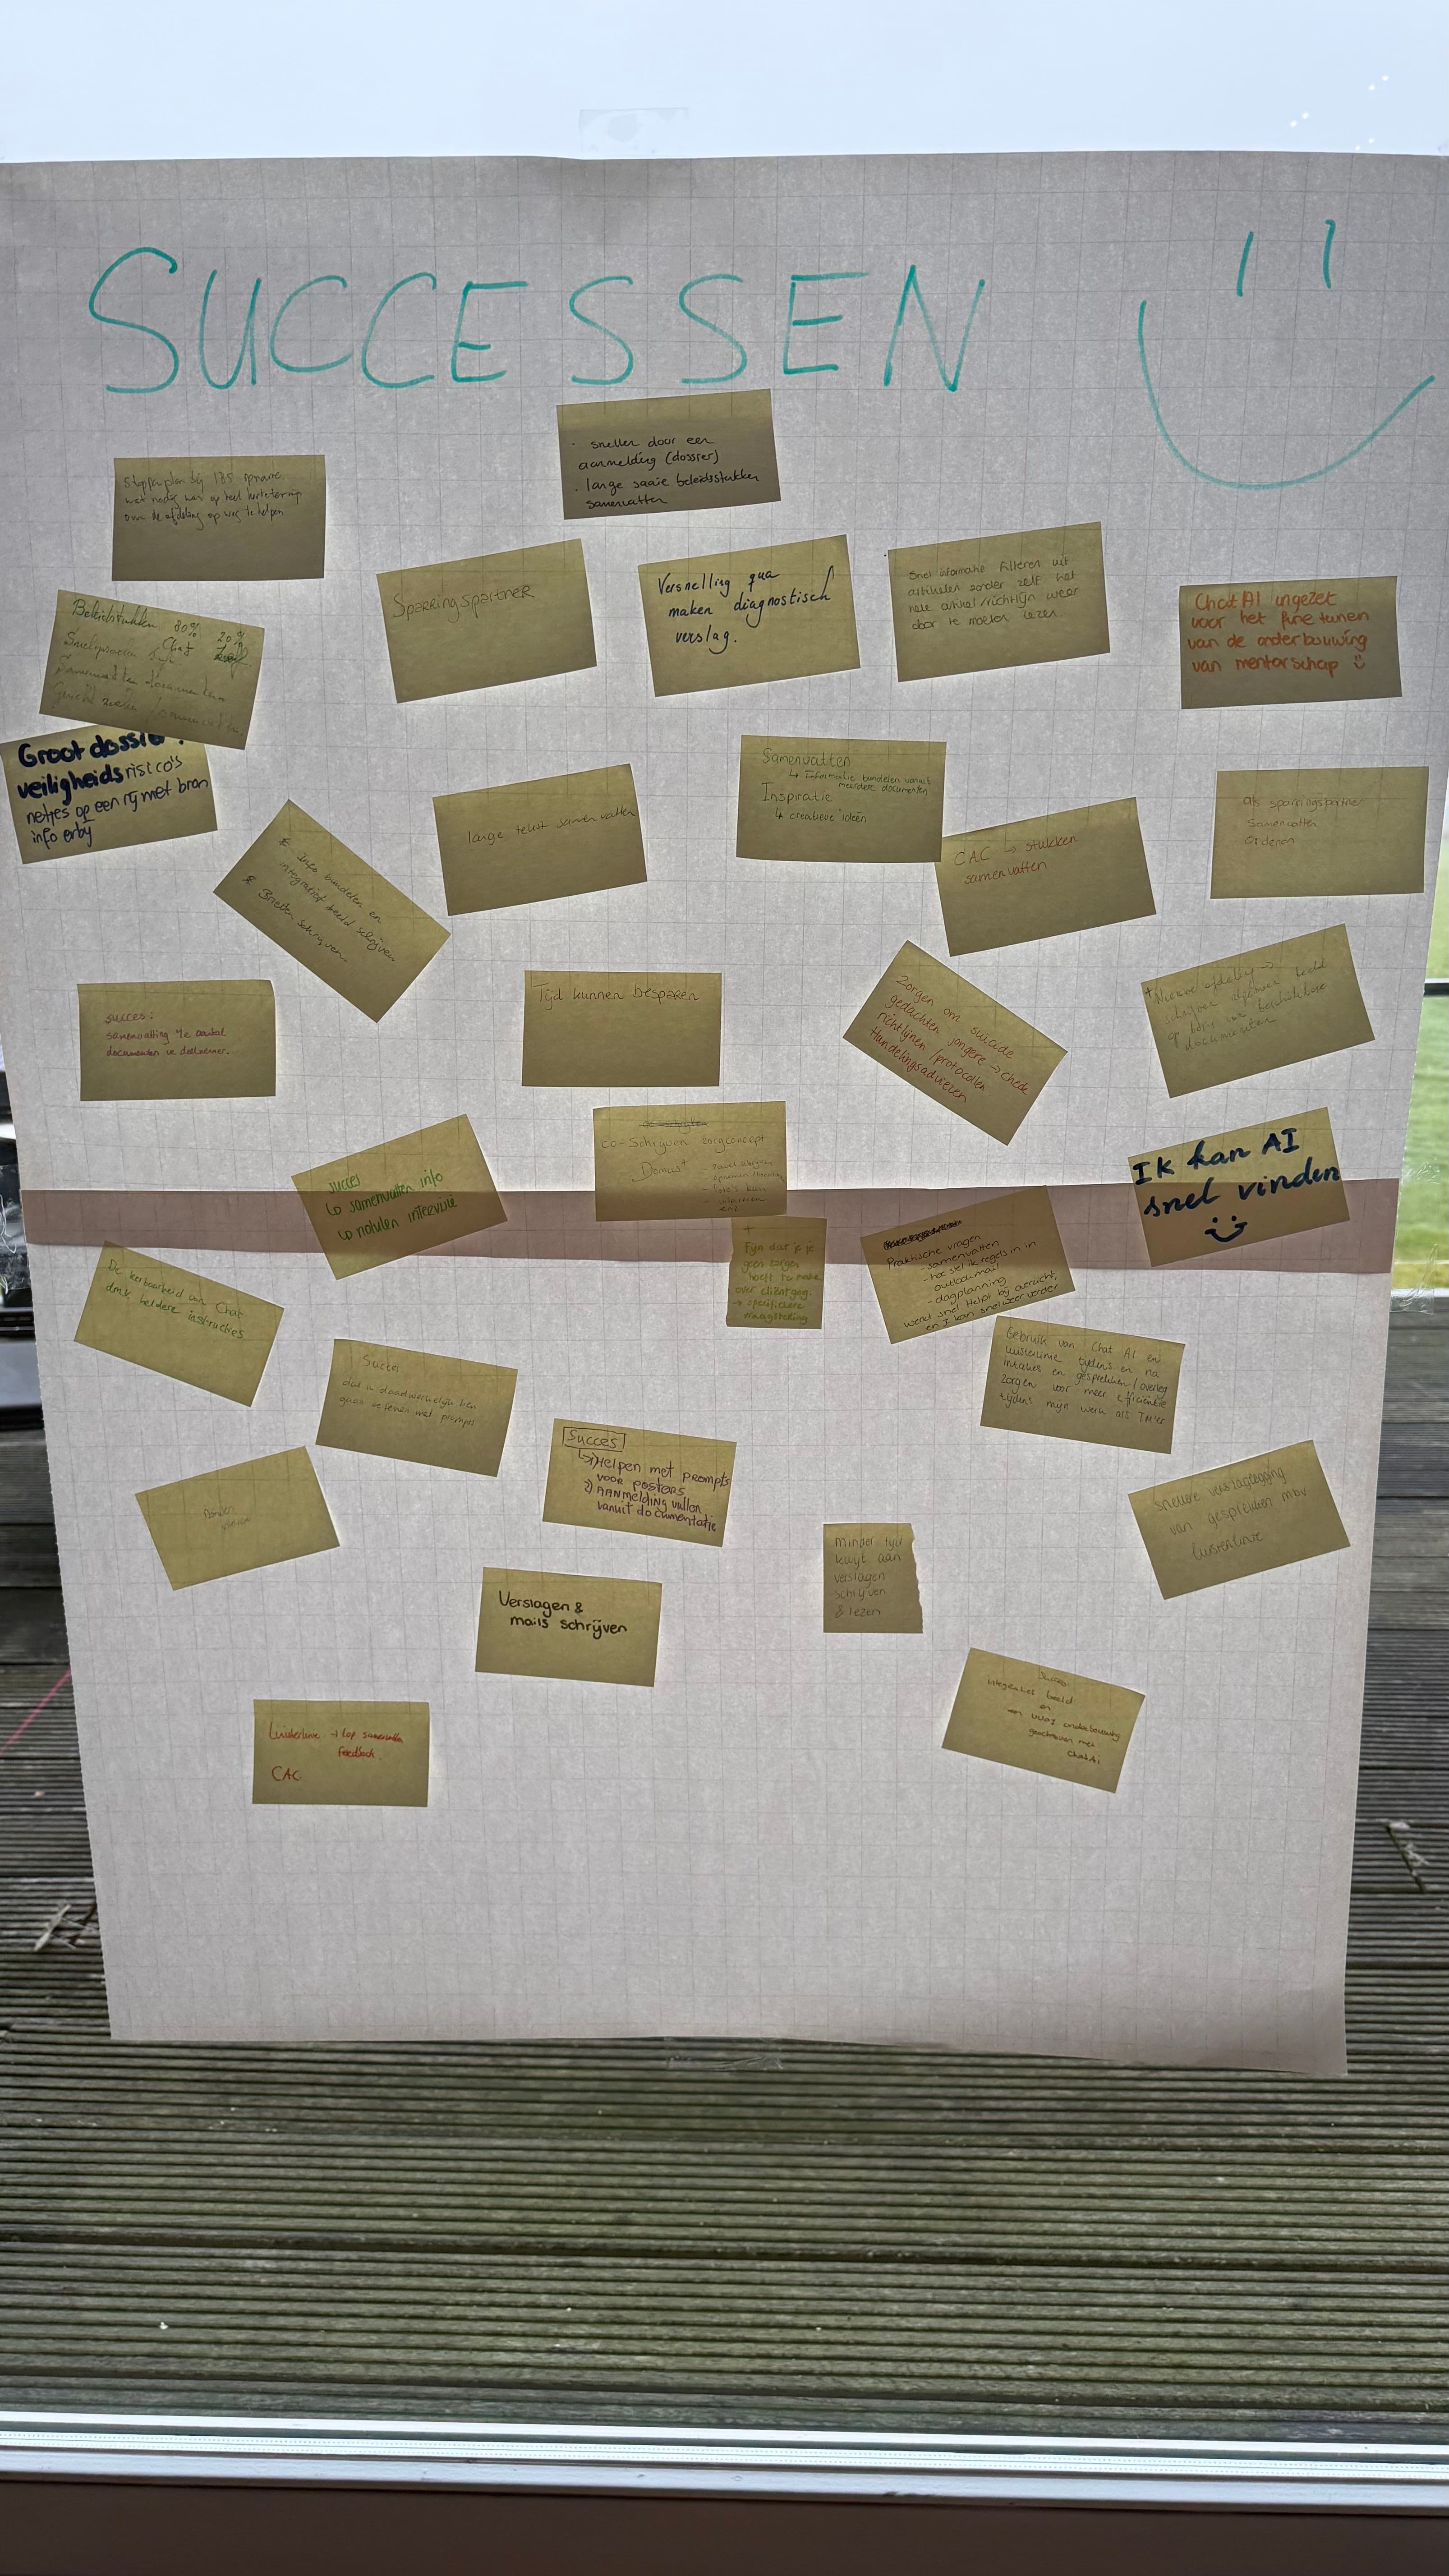 SUCCESSEN
· sneller door een
aanmelding (dossier)
· lange saaie beleidsstukken
samenvatten
Stappenplan bij 1G5 opname
wat nodig was op heel korte termijn
om de afdeling op weg te helpen
Sparringspartner
Versnelling qua
maken diagnostisch
verslag.
Snel informatie filteren uit
artikelen zonder zelf het
hele artikel/richtlijn weer
door te moeten lezen.
Chat AI ingezet
voor het fine tunen
van de onderbouwing
van mentorschap
Beleidstukken 80% 20%
Chat
Samenvatten documenten
Groot dossier:
veiligheidsrisico's
netjes op een rij met bron
info erbij
* Info bundelen en
integratief beeld schrijven
* Brieven schrijven.
lange tekst samenvatten
Samenvatten
↳ Informatie bundelen vanuit
meerdere documenten
Inspiratie
↳ creatieve ideeën
CAC ↳ stukken
samenvatten
als sparringspartner
Samenvatten
Ordenen
succes:
samenvatting 4e aantal
documenten ve deelnemer.
Tijd kunnen besparen
Zorgen om suicide
gedachten jongere → check
richtlijnen/protocollen
Handelingsadviezen
+ Nieuwe afdeling →
schrijven beeld
op basis van beschikbare
documenten
succes
↳ samenvatten info
↳ notulen intervisie
co-schrijven zorgconcept
Domus+
Ik kan AI
snel vinden
+
Fijn dat je je
geen zorgen
hoeft te maken
over clientgeg.
→ specifiekere
vraagstelling
Praktische vragen
- samenvatten
- hoe stel ik regels in in
outlookmail
- dagplanning
werkt snel. Helpt bij overzicht,
en I kan snel weer verder
De leerbaarheid van Chat
dmv heldere instructies
Succes
dat ik daadwerkelijk ben
gaan oefenen met prompts
Gebruik van Chat AI en
luisterlinie tijdens en na
intakes en gesprekken/overleg
zorgen voor meer efficiëntie
tijdens mijn werk als TM'er
Succes
↳ 1) Helpen met prompts
voor posters
2) AANmelding vullen
vanuit documentatie
Snellere verslaglegging
van gesprekken mbv
luisterlinie
minder tijd
kwijt aan
verslagen
schrijven
& lezen
Verslagen &
mails schrijven
Succes:
integratief beeld
en
onderbouwing
geschreven met
ChatAi
Luisterlinie → top samenvatten
feedback.
CAC